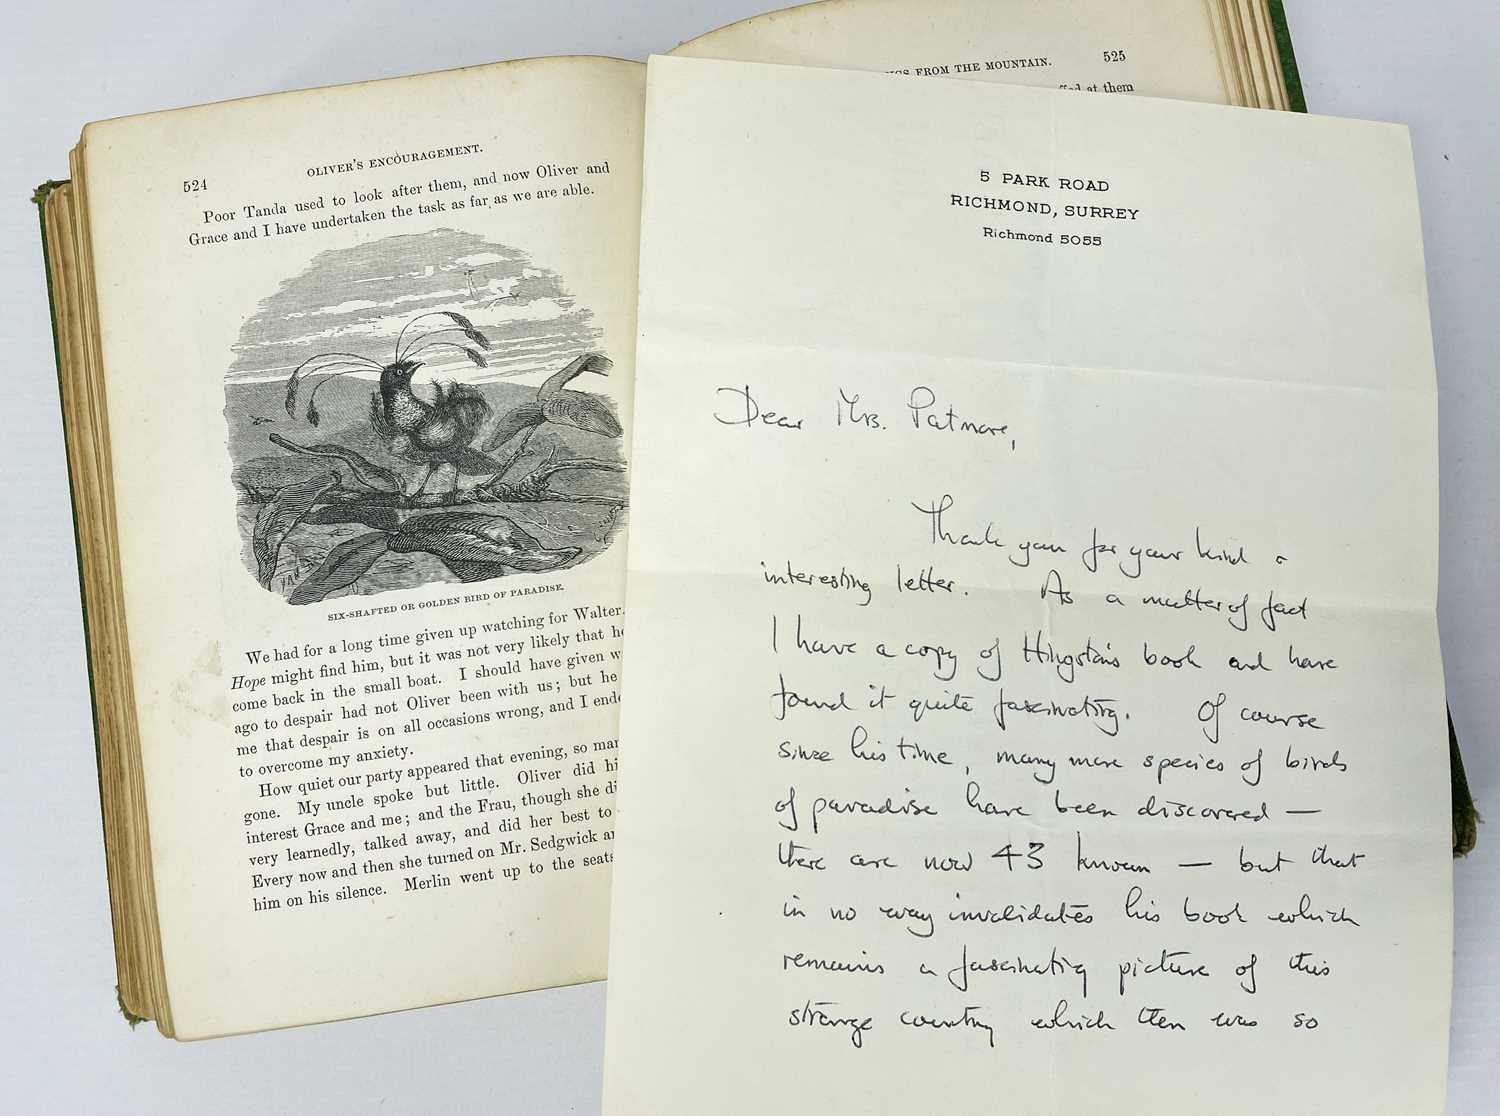 524
OLIVER'S ENCOURAGEMENT.
Poor Tanda used to look after them, and now Oliver and
Grace and I have undertaken the task as far as we are able.
SIX-SHAFTED OR GOLDEN BIRD OF PARADISE.
We had for a long time given up watching for Walter.
Hope might find him, but it was not very likely that he
come back in the small boat. I should have given
ago to despair had not Oliver been with us; but he
me that despair is on all occasions wrong, and I
to overcome my anxiety.
How quiet our party appeared that evening, so
gone. My uncle spoke but little. Oliver did
interest Grace and me; and the Frau, though she
very learnedly, talked away, and did her best to
Every now and then she turned on Mr. Sedgwick
him on his silence. Merlin went up to the seats
FROM THE MOUNTAIN.
525
at them
5 PARK ROAD
RICHMOND, SURREY
Richmond 5055
Dear Mrs. Patmore,
Thank you for your kind &
interesting letter. As a matter of fact
I have a copy of Hingston's book and have
found it quite fascinating. Of course
since his time, many more species of birds
of paradise have been discovered —
there are now 43 known — but that
in no way invalidates his book which
remains a fascinating picture of this
strange country which then was so